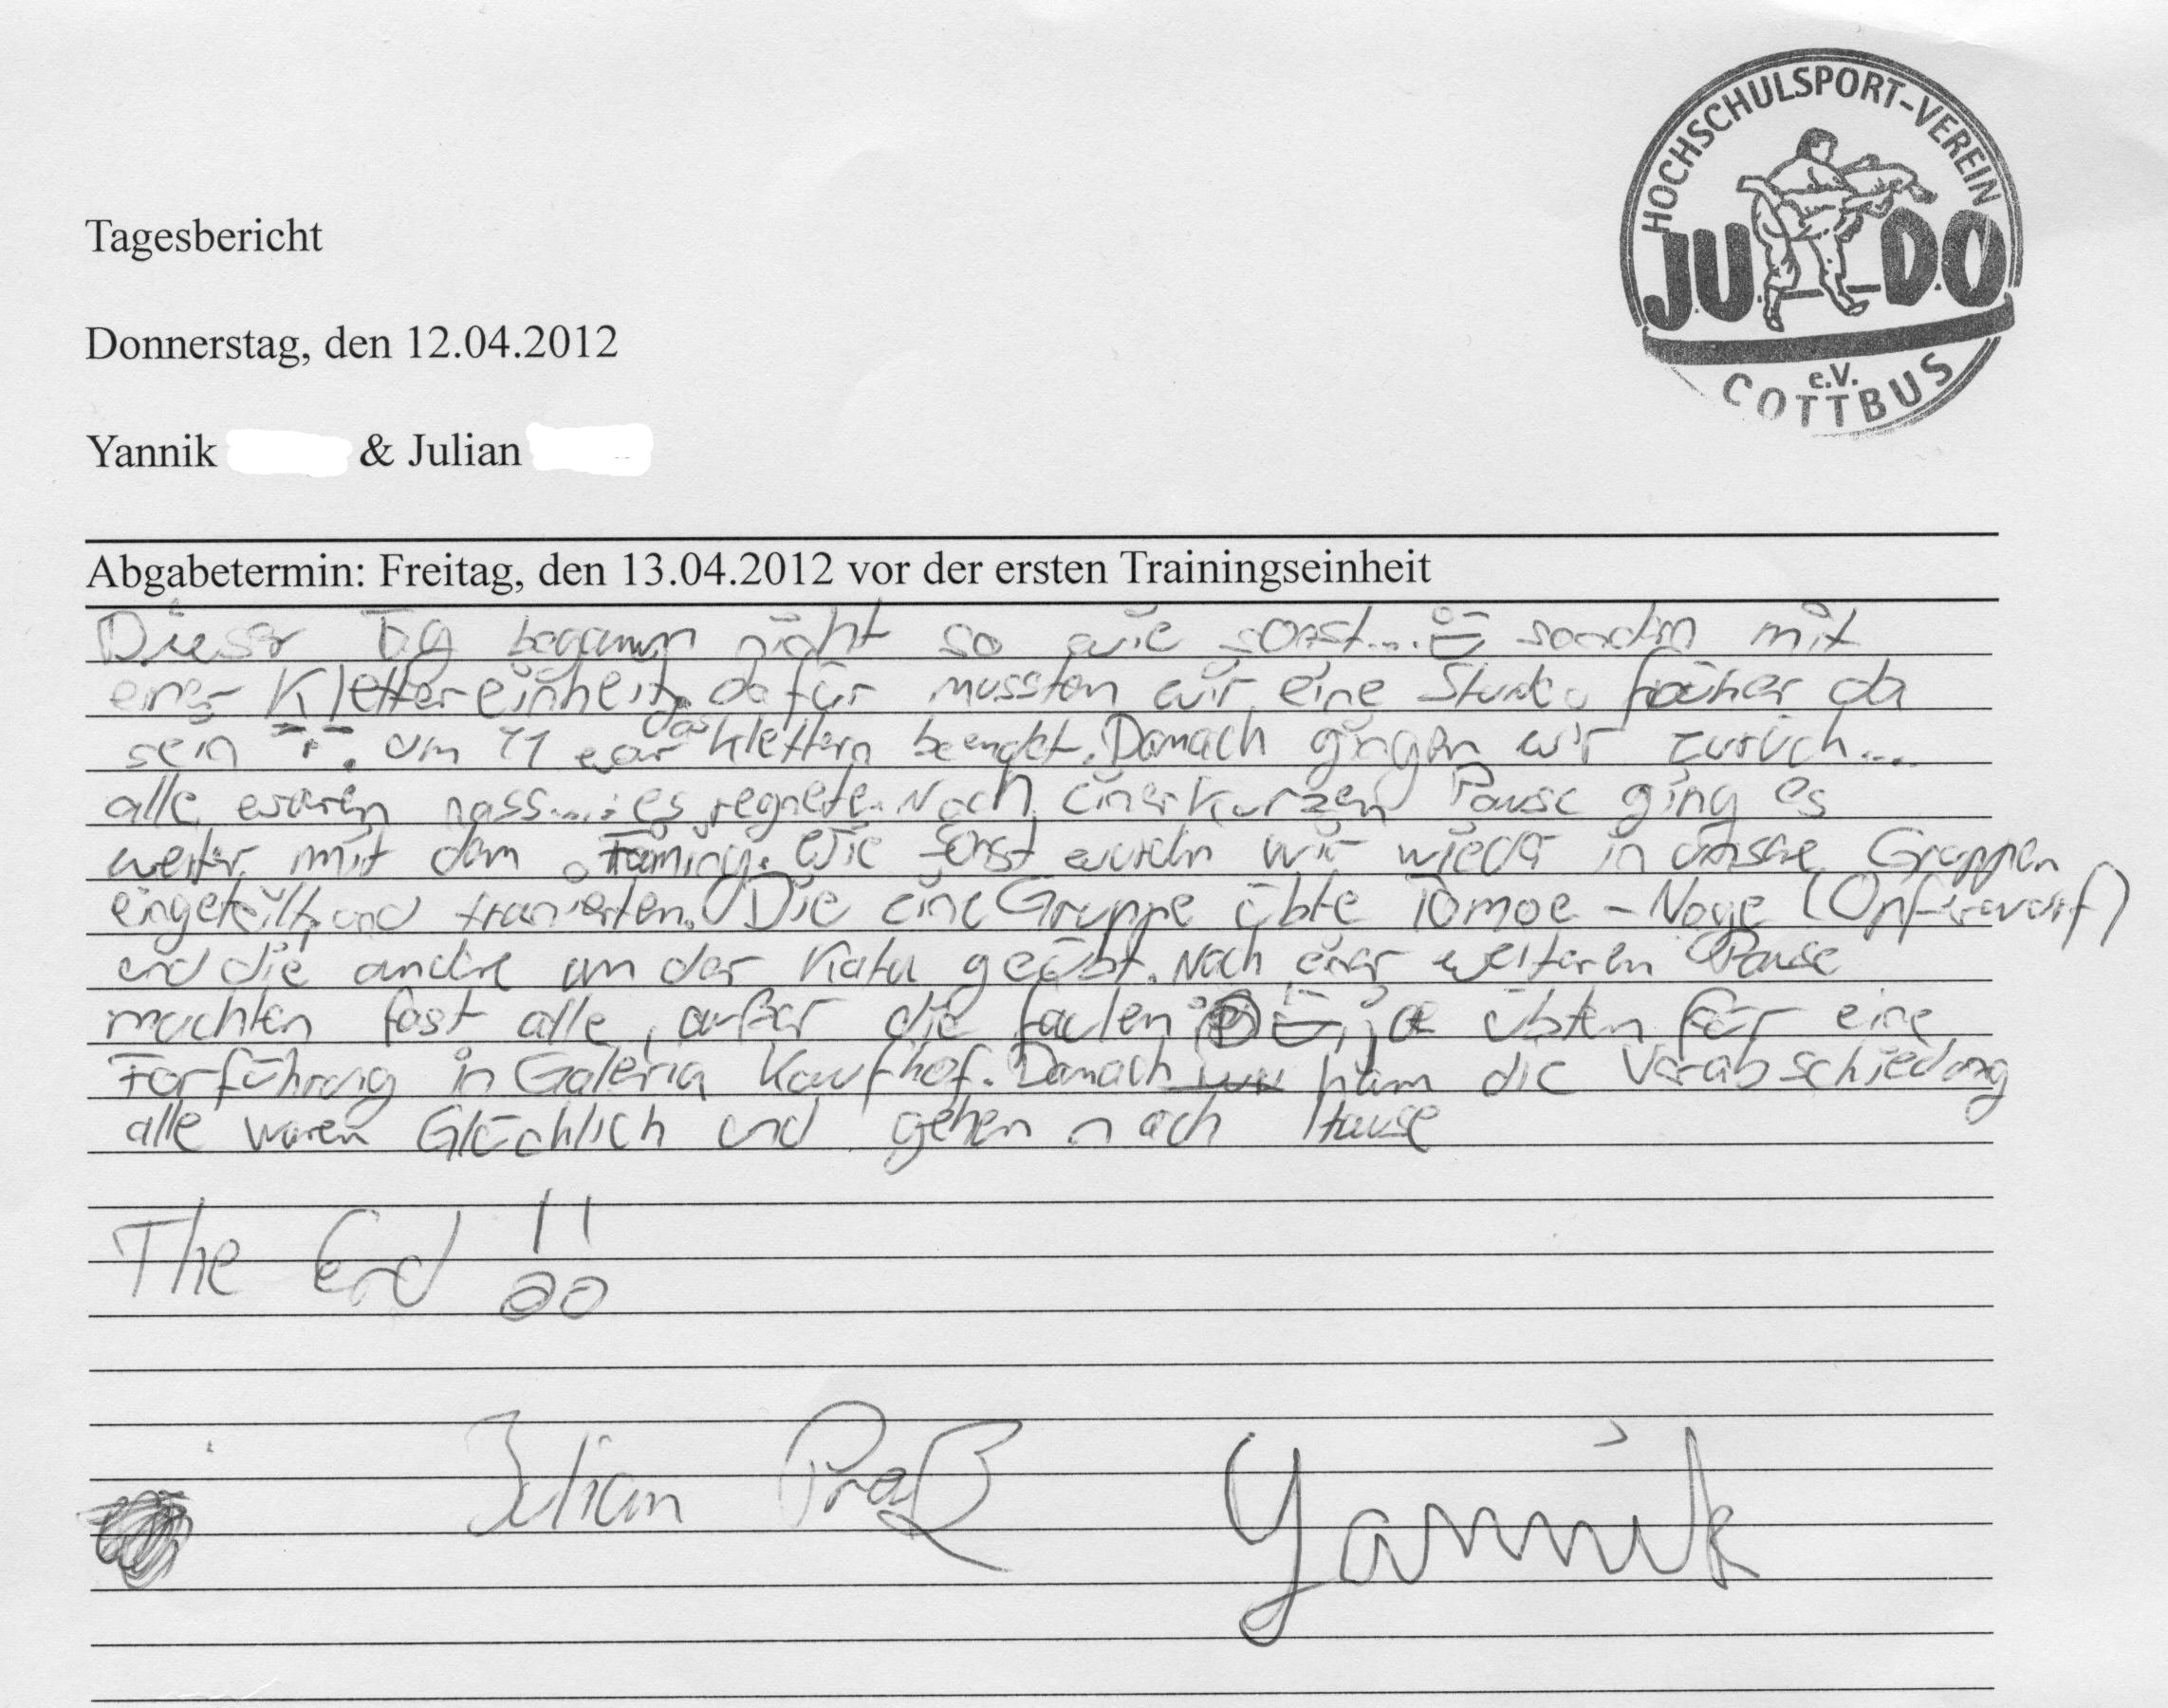 HOCHSCHULSPORT-VEREIN
JUDO
e.V.
COTTBUS
Tagesbericht
Donnerstag, den 12.04.2012
Yannik & Julian
Abgabetermin: Freitag, den 13.04.2012 vor der ersten Trainingseinheit
Dieser Tag begann nicht so wie sonst.... sondern mit
einer Klettereinheit, dafür mussten wir eine Stunde früher da
sein. Um 11 war das Klettern beendet. Danach gingen wir zurück....
alle waren nass....: es regnete. Nach einer kurzen Pause ging es
weiter mit dem Training. Wie sonst wurden wir wieder in unsere Gruppen
eingeteilt und tranierten. Die eine Gruppe übte Tomoe-Nage (Opferwurf)
und die andre an der Kata geübt. Nach einer weiteren Pause
machten fast alle, außer die faulen übten für eine
Forführung in Galeria Kaufhof. Danach kam die Verabschiedung
alle waren Glücklich und gehen nach Hause
The End !!
Julian Praß Yannik